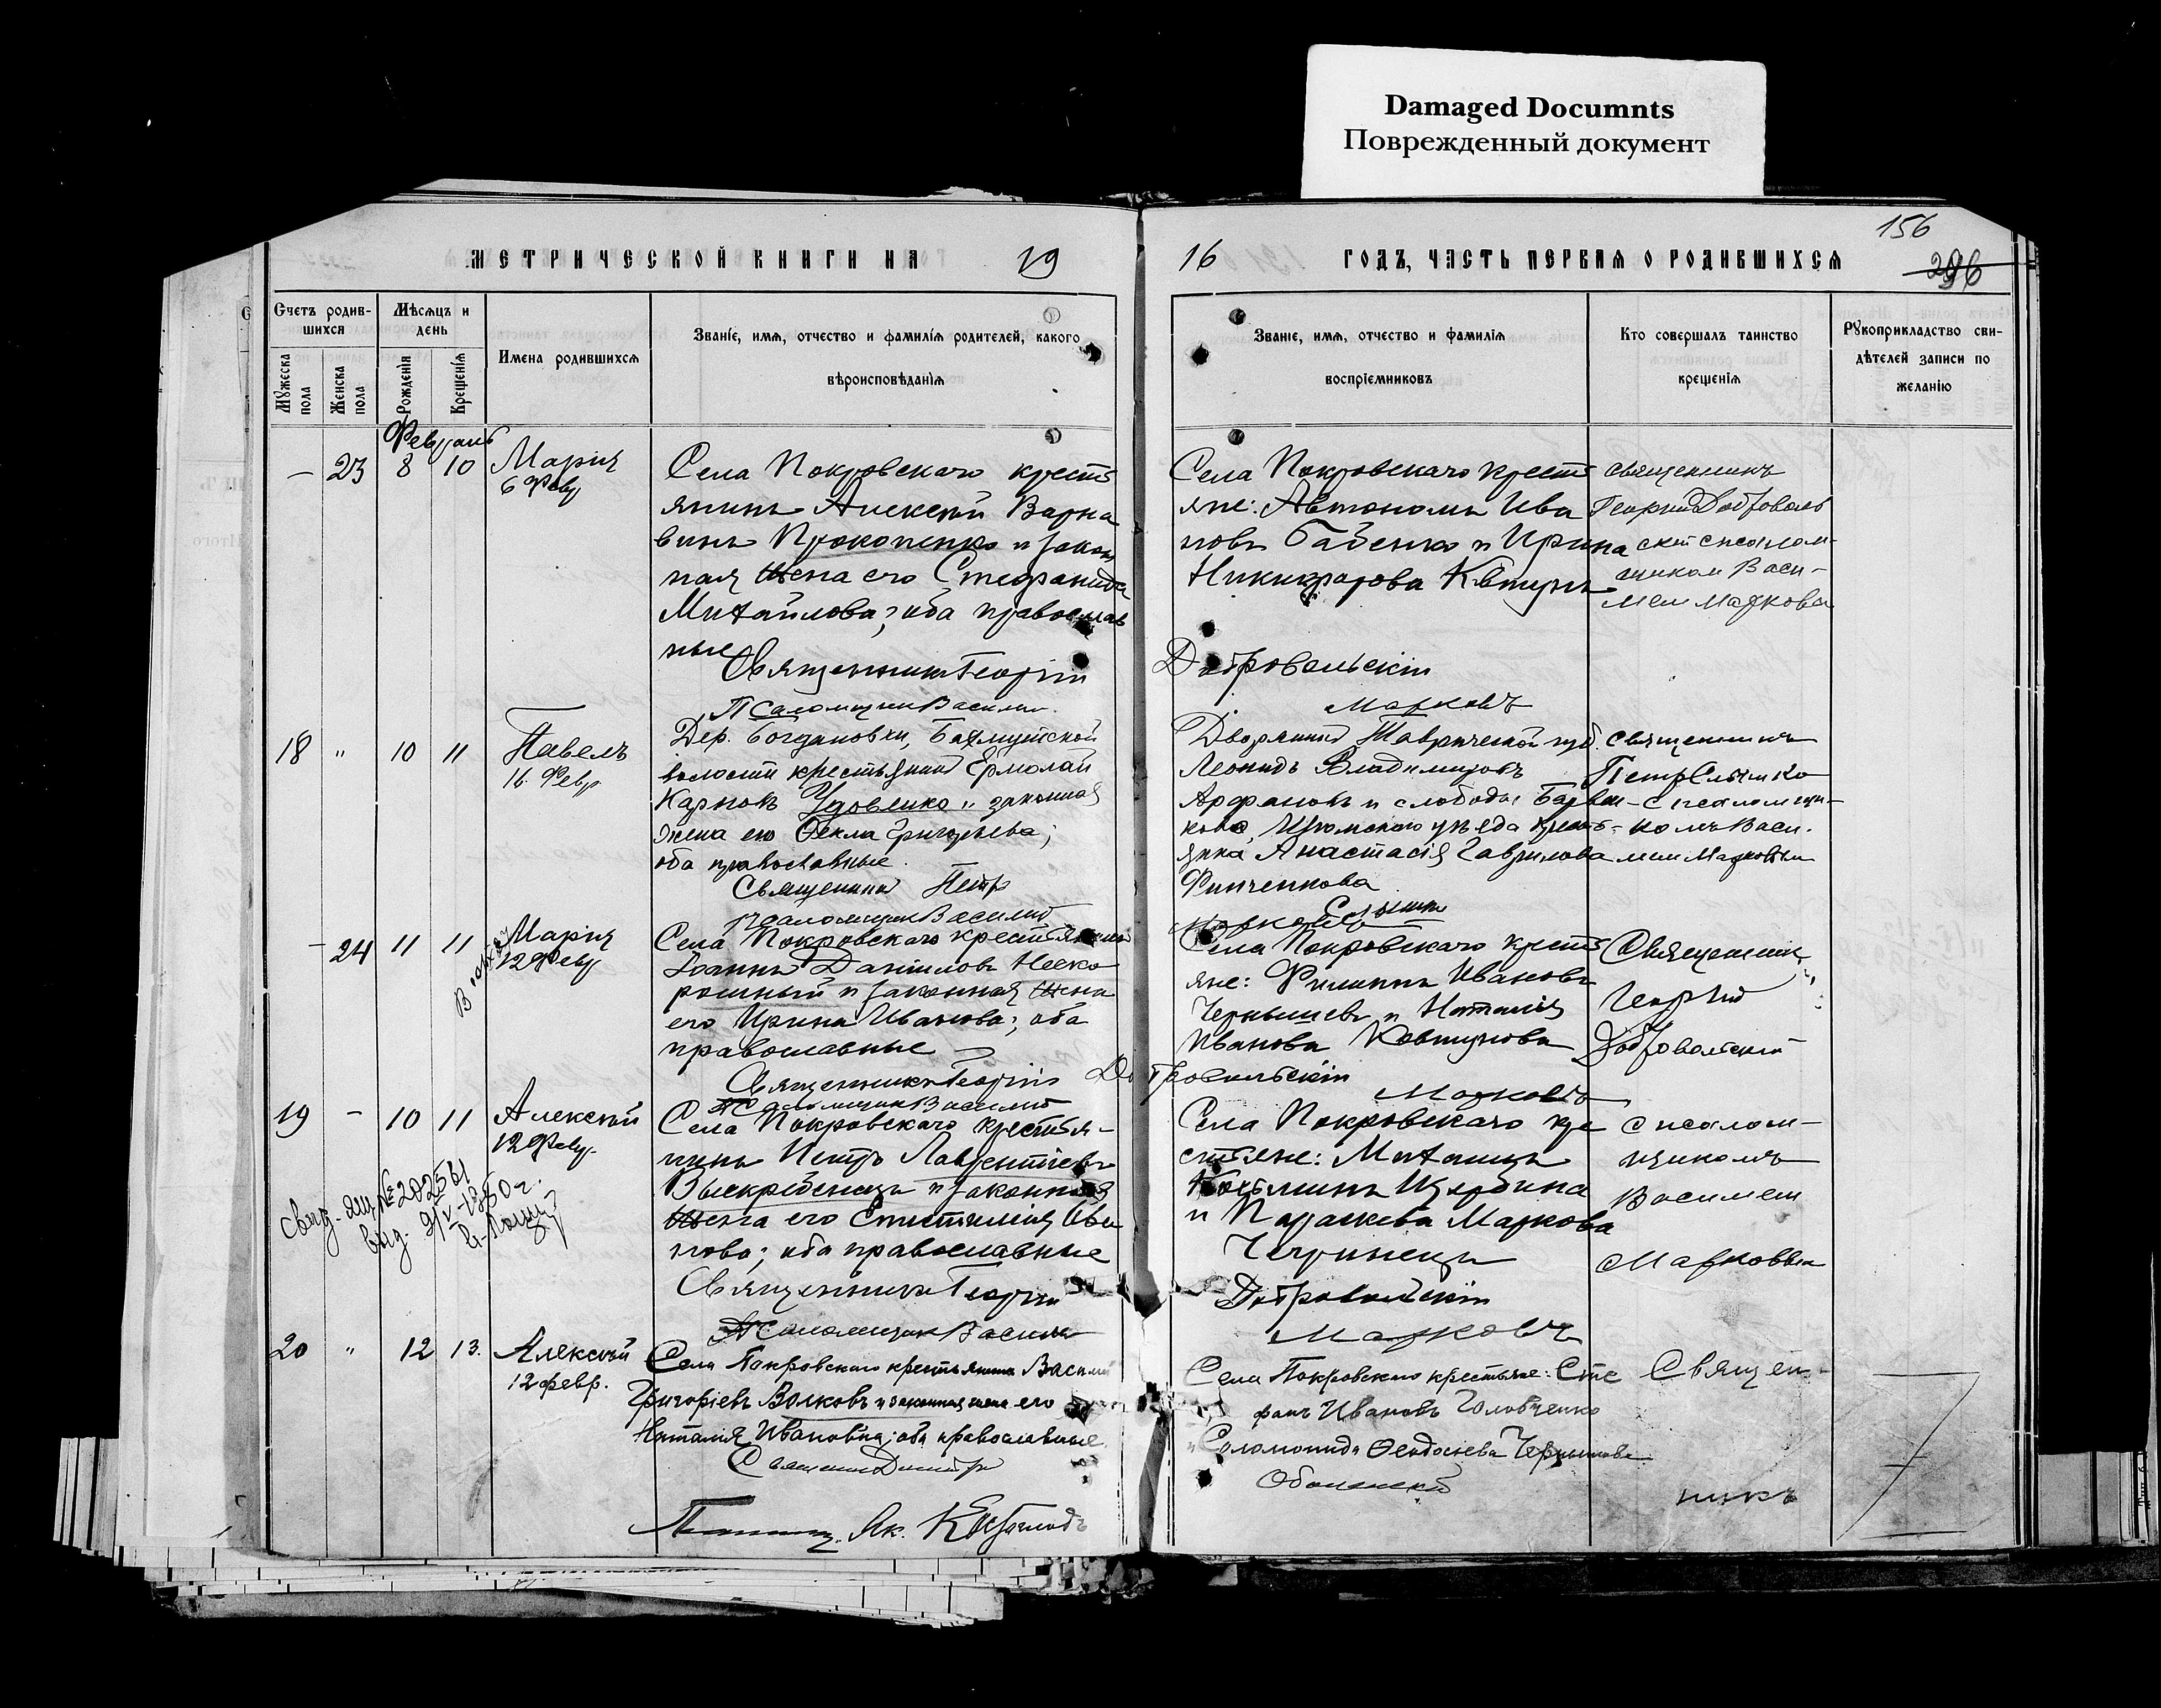 Damaged Documnts
Поврежденный документ
156
296
МЕТРИЧЕСКОЙ КНИГИ НА 19
16 ГОДЪ, ЧАСТЬ ПЕРВАЯ О РОДИВШИХСЯ
Счетъ родив-
шихся
Мужеска пола
Женска пола
Мѣсяцъ и
день
Рожденія
Крещенія
Имена родившихся
Званіе, имя, отчество и фамилія родителей, какого
вѣроисповѣданія
Званіе, имя, отчество и фамилія
воспріемниковъ
Кто совершалъ таинство
крещенія
Рукоприкладство сви-
дѣтелей записи по
желанію
Февраль
– 23 8 10 Марія
6 Февр
Села Покровскаго кресть
янинъ Алексѣй Варна
винъ Прокопенко и закон
ная жена его Стефанида
Михайлова; оба православ
ные
Священникъ Георгій
Псаломщикъ Василій
Села Покровскаго кресть
яне: Автономъ Ива
новъ Бабенко и Ирина
Никифорова
Священникъ
Георгій Доброволь
скій с псалом-
щикомъ Васи-
лем Марковы
Добровольскій
Марковъ
18 " 10 11 Павелъ
16. Февр
Дер. Богдановки,
волости крестьянинъ Ермолай
Карповъ Удовенко и законная
жена его Ѳекла Григорьева;
оба православные.
Священникъ Петр
псаломщикъ Василій
Дворянинъ Таврической губ.
Леонидъ Владимировъ
и слободы Барвен-
кова, Изюмскаго уѣзда кресть-
янка Анастасія Гаврилова
Финченкова
Марковъ
Священникъ
Петр
с псаломщи-
комъ Васи-
лем Марковым
– 24 11 11 Марія
12 Февр
Села Покровскаго крестьянинъ
Іоаннъ Даніиловъ Неско
рошный и законная жена
его Ирина Иванова; оба
православные
Священникъ Георгій
Псаломщикъ Василій
Села Покровскаго кресть
яне: Филиппъ Ивановъ
Чернышевъ и Наталія
Иванова Ковтунова
Священник
Георгій
Добровольскій
Добровольскій
Марковъ
19 – 10 11 Алексѣй
12 Февр.
Села Покровскаго крестья-
нинъ Петръ Лаврентіевъ
Выскребенецъ и законная
жена его Ива
нова; оба православные
Священникъ Георгій
Псаломщикъ Василій
Села Покровскаго кре
стьяне: Михаилъ
Козьминъ Щербина
и Параскева Маркова
Чегринецъ
с псалом-
щикомъ
Василем
Марковым
Добровольскій
Марковъ
20 " 12 13. Алексѣй
12 февр.
Села Покровскаго крестьянинъ Василій
Григоріевъ Волковъ и законная жена его
Наталія Ивановна; оба православные.
Священникъ Димитрій
Як.
Села Покровскаго крестьяне: Сте
фанъ Ивановъ Головченко
и Соломонида Ѳеодосіева
Оболенскій
Священ-
никъ